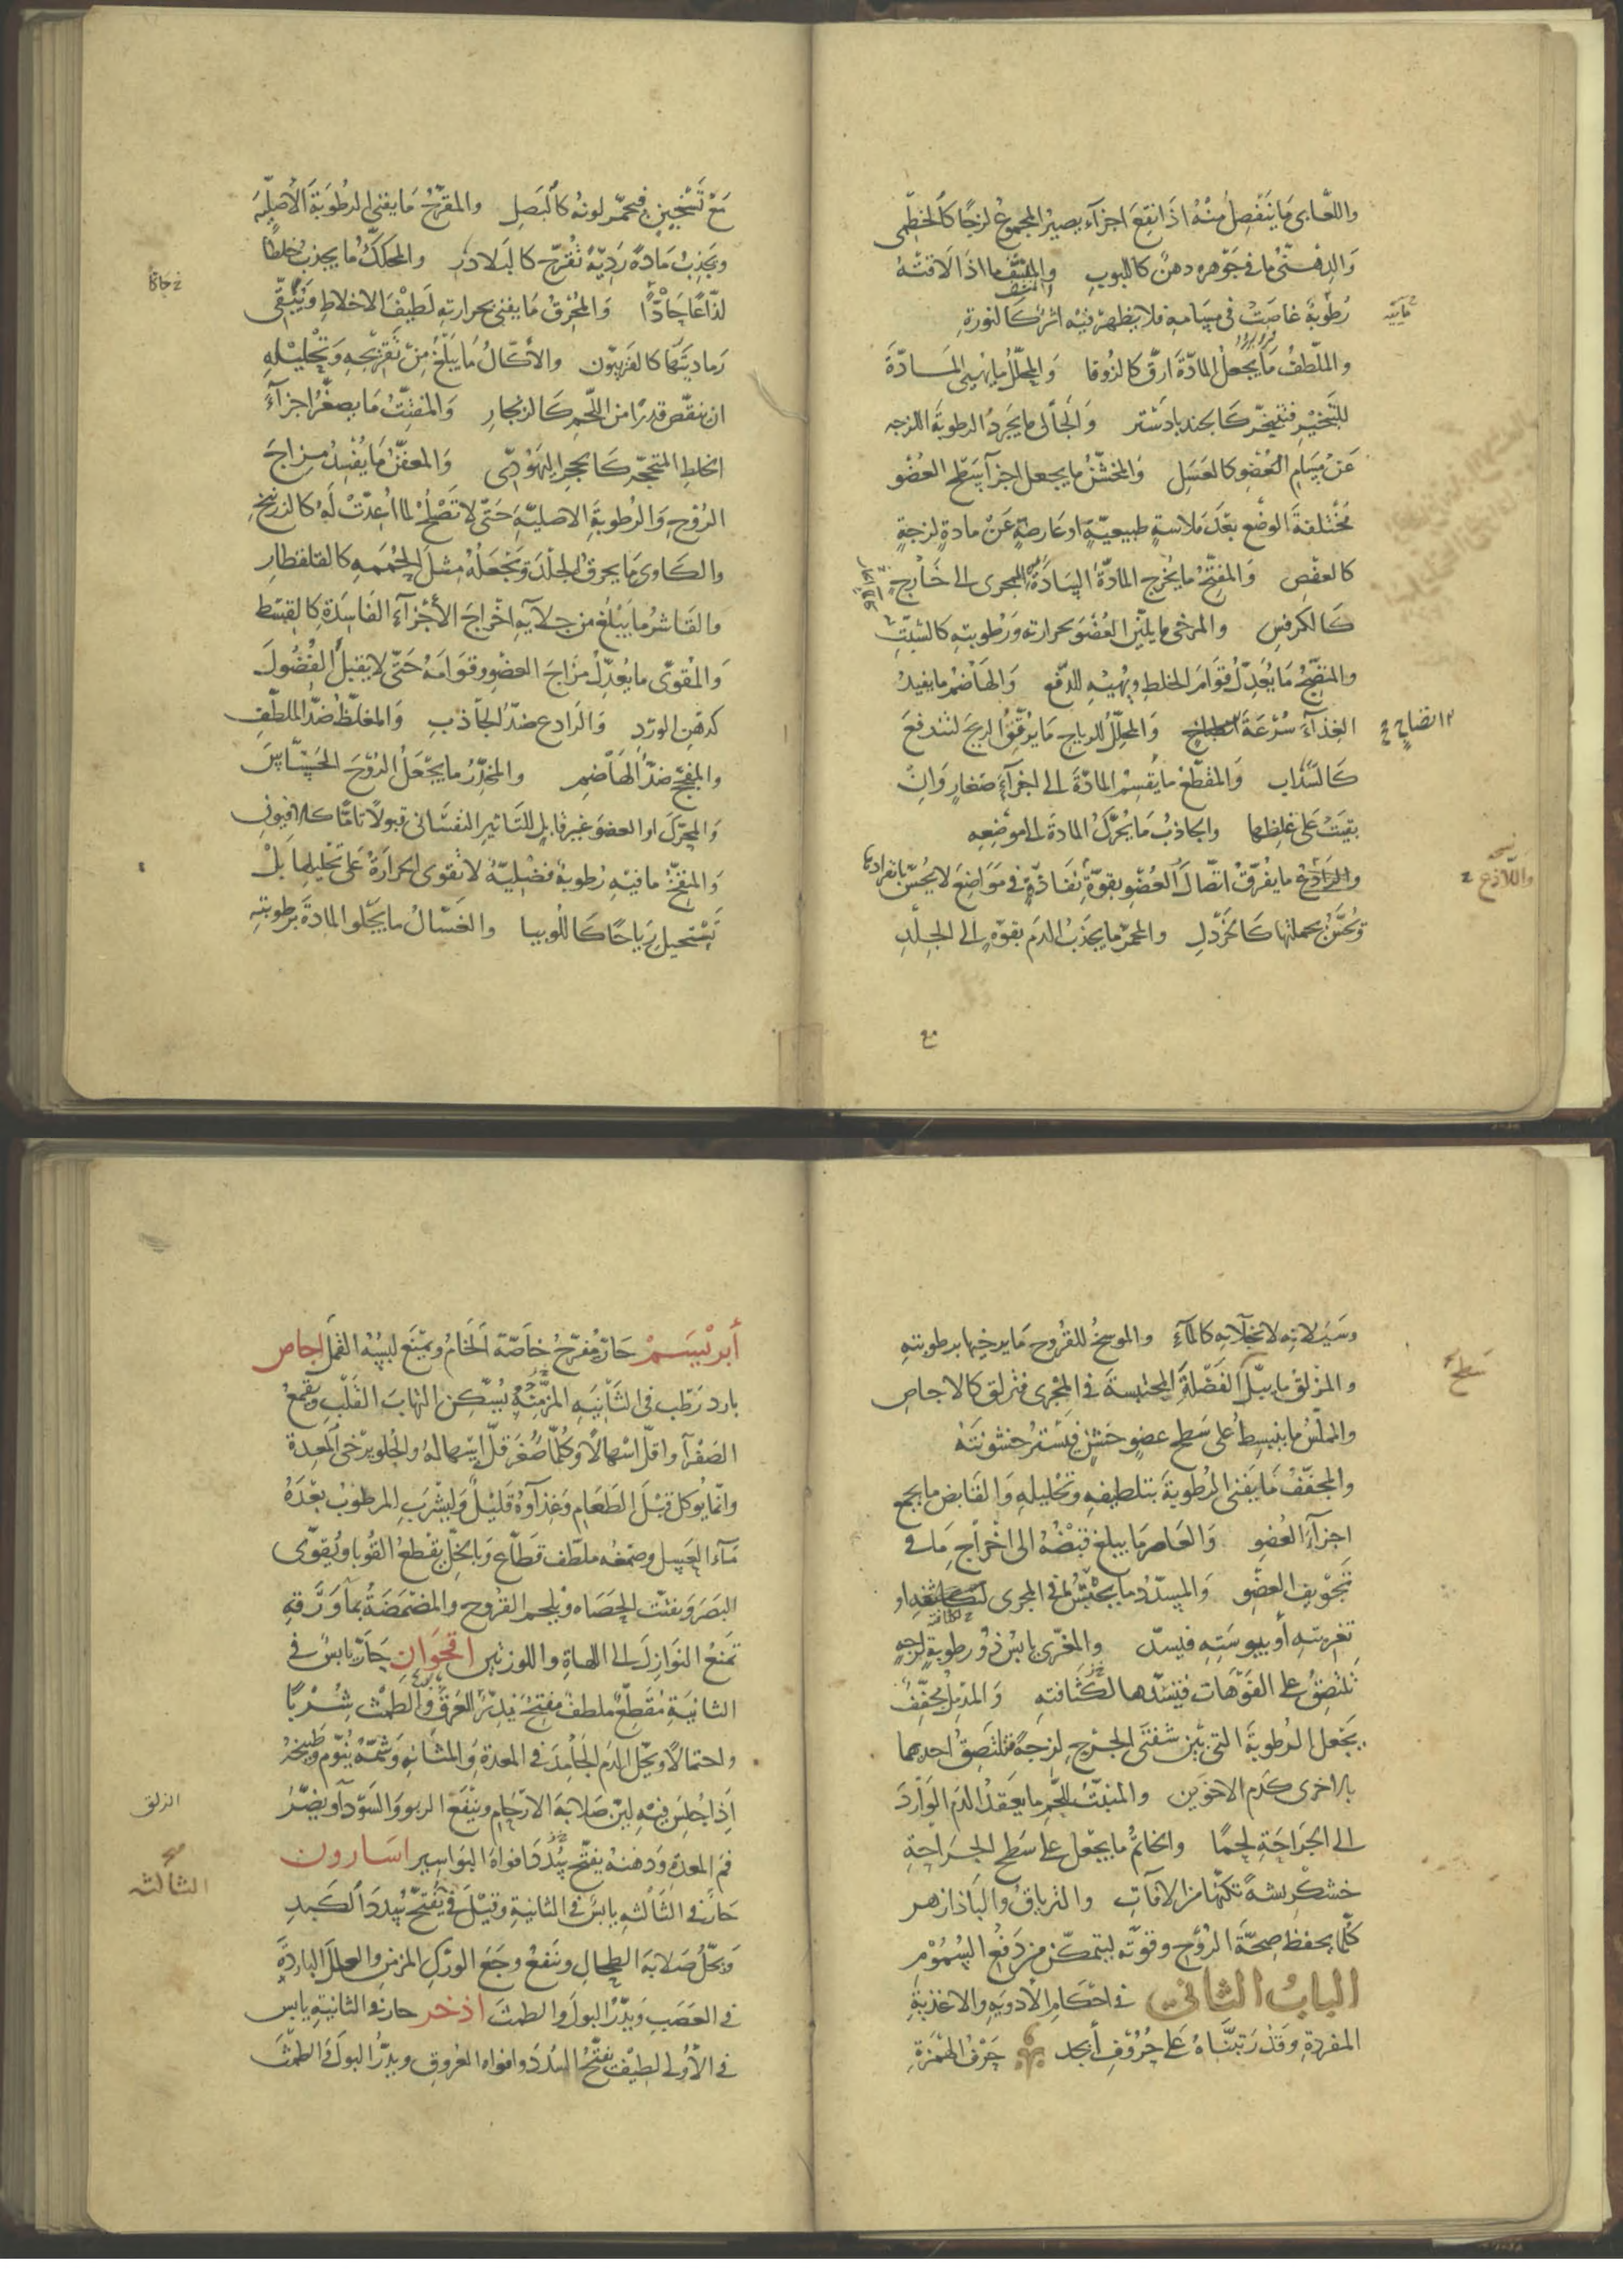 واللعابى ما ينفصل منه اذا نقع اجزآء يصير المجموع لزجا كالخطمى
والدهنى ما فى جوهره دهن كاللبوب والمنشف ما اذا لاقته
رطوبة غاصت فى مسامه فلا يظهر فيه اثر كالنورة
مائيه
والملطف ما يجعل المادة ارق كالزوفا والمحلل ما يهيى المادة
للتبخير فتتبخر كالجندبادستر والجالى ما يجرد الرطوبة اللزجه
عن مسام العضو كالعسل والمخشن ما يجعل اجزآ سطح العضو
مختلفة الوضع بعد ملاسة طبيعية او عارضة عن مادة لزجة
كالعفص والمفتح ما يخرج المادة السادة للمجرى الى خارج
كالكرفس والمرخى ما يلين العضو بحرارته ورطوبته كالشبت
والمنضج ما يعدل قوام الخلط ويهيه للدفع والهاضم ما يفيد
الغذآء سرعة انطباخ والمحلل للرياح ما يرقق الريح لتندفع
انضاج
كالسذاب والمقطع ما يقسم المادة الى اجزآء صغار وان
بقيت على غلظها والجاذب ما يحرك المادة الى موضعه
والرادع ما يفرق اتصال العضو بقوة نفاذة فى مواضع لا يحس بانفرادها
نسخه
واللاذع
وتحس بجملتها كالخردل والمحمر ما يجذب الدم بقوة الى الجلد
مع تسخين فيحمر لونه كالبصل والمقرح ما يفنى الرطوبة الاصلية
ويجذب مادة ردية تقرح كالبلادر والمحكك ما يجذب خلطا
لذاعا حادا والمحرق ما يفنى بحرارته لطيف الاخلاط ويبقى
رماديتها كالفربيون والاكال ما يبلغ من تقريحه وتحليله
ان ينقص قدرا من اللحم كالزنجار والمفتت ما يصغر اجزآء
الخلط المتحجر كالحجر اليهودى والمعفن ما يفسد مزاج
الروح والرطوبة الاصلية حتى لا تصلح لما اعدت له كالزرنيخ
والكاوى ما يحرق الجلد وتجعله مثل الحممه كالقلقطار
والقاشر ما يبلغ من جلآيه اخراج الأجزآء الفاسدة كالقسط
والمقوى ما يعدل مزاج العضو وقوامه حتى لا يقبل الفضول
كدهن الورد والرادع ضد الجاذب والمغلظ ضد الملطف
والمفجج ضد الهاضم والمخدر ما يجعل الروح الحساس
والمحرك او العضو غير قابل للتاثير النفسانى قبولا تاما كالافيون
والمنفخ ما فيه رطوبة فضلية لا تقوى الحرارة على تحليلها بل
تستحيل رياحا كاللوبيا والغسال ما يجلو المادة برطوبته
وسيلانه لا بجلآيه كالمآء والموسخ للقروح ما يرخيها برطوبته
والمزلق ما يبل الفضلة المحتبسة فى المجرى فتزلق كالاجاص
سطح
والمملس ما ينبسط على سطح عضو خشن فيستر خشونته
والمجفف ما يفنى الرطوبة بتلطيفه وتحليله والقابض ما يجمع
اجزآء العضو والعاصر ما يبلغ قبضه الى اخراج ما فى
تجويف العضو والمسدد ما يحتبس فى المجرى لكثافته او
تغريته أو يبوسته فيسد والمغرى يابس ذو رطوبة لزجة
تلتصق على الفوهات فيسدها لكثافته والمدمل مجفف
يجعل الرطوبة التى بين شفتى الجرح لزجة فتلتصق احديهما
بالاخرى كدم الاخوين والمنبت للحم ما يعقد الدم الوارد
الى الجراحة لحما والخاتم ما يجعل على سطح الجراحة
خشكريشة تكنها من الآفات والترياق والباذازهر
كلما يحفظ صحة الروح وقوته ليتمكن من دفع السموم
الباب الثانى فى احكام الأدوية والاغذية
المفردة وقد رتبناه على حروف أبجد حرف الهمزة
أبريسم حار مفرح خاصة الخام ويمنع لبسه القمل اجاص
بارد رطب فى الثانيه المز منه يسكن التهاب القلب ويقمع
الصفرآ واقل اسهالا وكلما صغر قل اسهاله والحلو يرخى المعدة
وانما يوكل قبل الطعام وغذآوه قليل وليشرب المرطوب بعده
مآء العسل وصمغه ملطف قطاع وبالخل يقطع القوبا ويقوى
البصر ويفتت الحصاه ويلحم القروح والمضمضة بمآ ورقه
تمنع النوازل الى اللهاة واللوزتين اقحوان حار يابس فى
الثانية مقطع ملطف مفتح يدر العرق والطمث شربا
واحتمالا ويحل الدم الجامد فى المعدة والمثانه وشمه ينوم وطبيخه
اذا جلس فيه لين صلابة الارحام وينفع الربو والسودآ ويضر
فم المعدة ودهنه يفتح سدد افواه البواسير اسارون
صح
الثالثه
حار فى الثالثه يابس فى الثانية وقيل فى يفتح سدد الكبد
ويحل صلابة الطحال وينفع وجع الورك المزمن والعلل الباردة
فى العصب ويدر البول والطمث اذخر حار فى الثانية يابس
فى الأولى لطيف يفتح السدد وافواه العروق ويدر البول والطمث